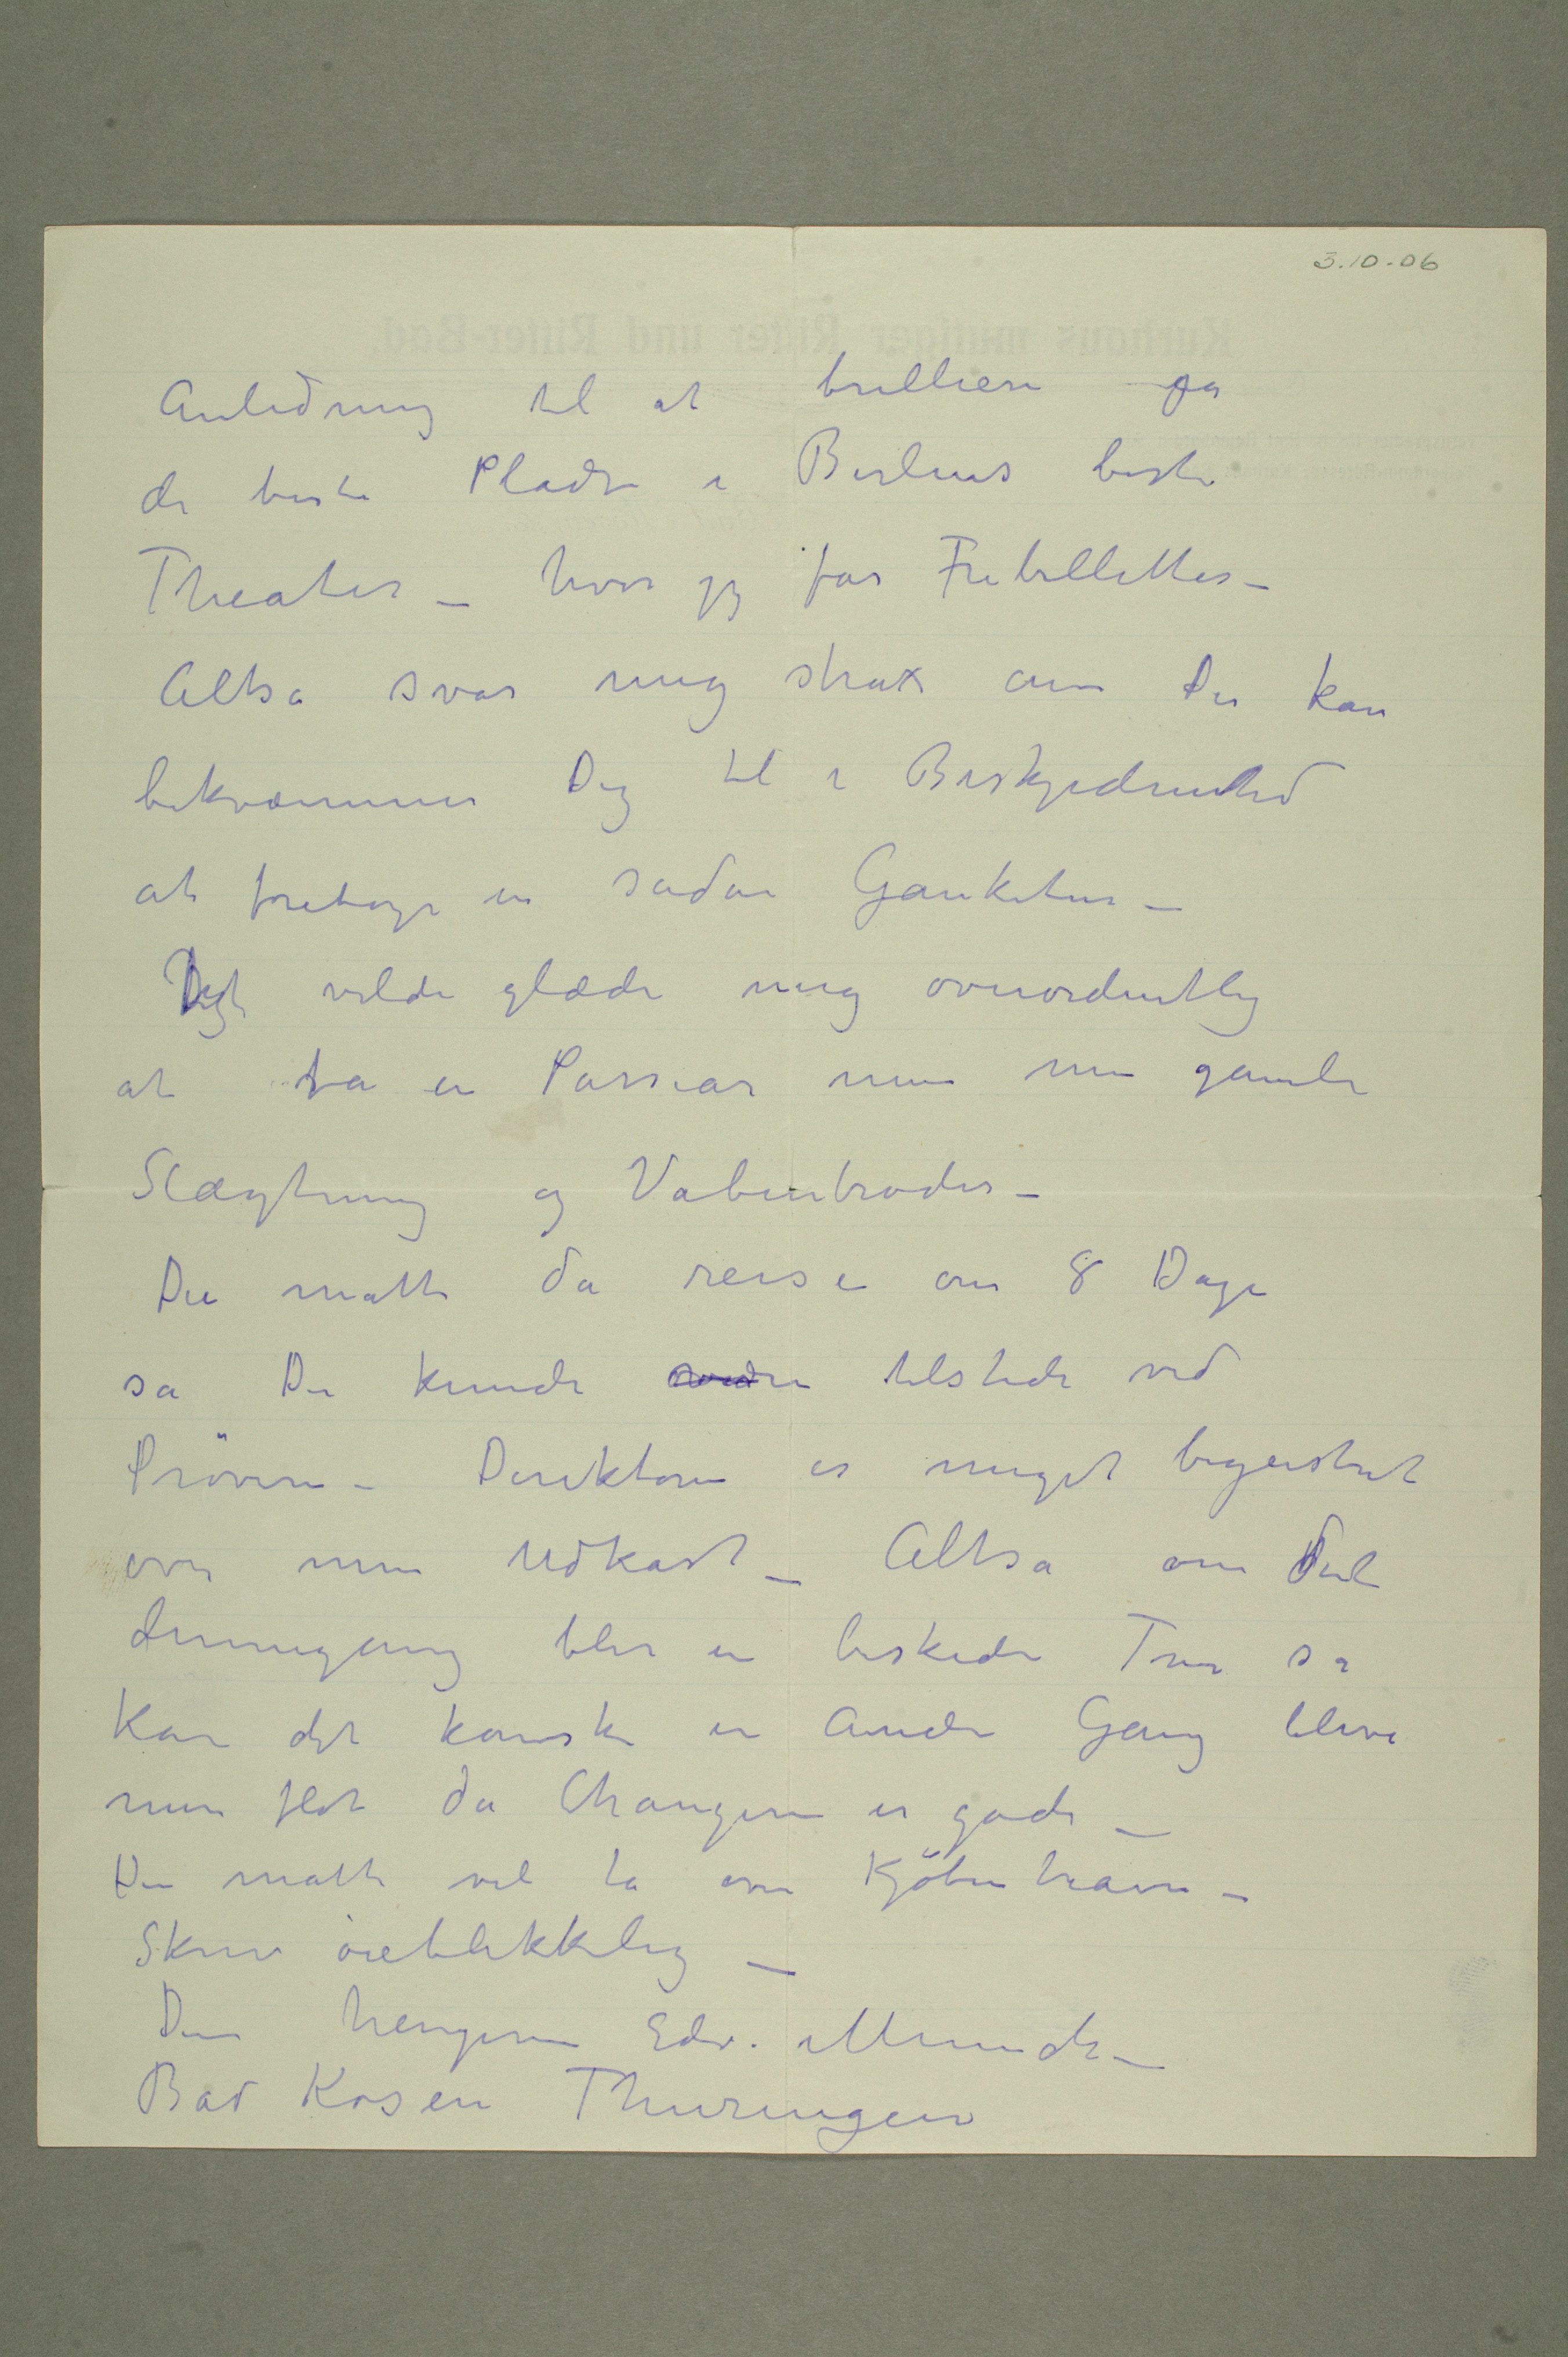 3.10-06
Anledning til at brilliere pa
de beste Pladse i Berlins beste
Theater – hvor jeg far Fribilletter –
Altsa svar mig strax om Du kan
bekvæmme Dig til i Beskjedenhed
at foretage en sadan Ganketur –
Det vilde glæde mig overordentlig
at ta en Passiar men min gamle
Slægtning og Vabenbroder –
Du matte da reise om 8 Dage
sa Du kunde være tilstede ved
Prövene – Direktøren er meget begeistret
over mine Udkast – Altsa om det
dennegang blir en beskeden Tur sa
kan det kanske en anden Gang blive
mere flot da Changsene er gode –
Du matte vel ta over Kjöbenhavn –
Skriv öieblikkelig –
Din hengivne Edv. Munch –
Bad Kosen Thuringen